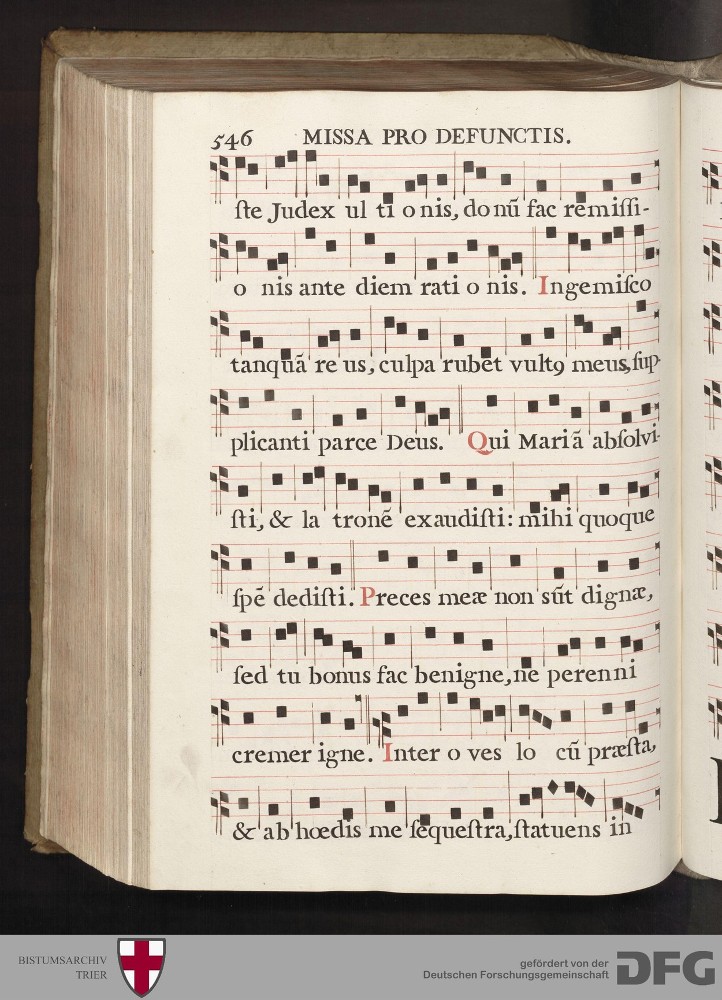 546 MISSA PRO DEFUNCTIS.
ſte Judex ul ti o nis, do nũ fac remiſſi-
o nis ante diem rati o nis. Ingemiſco
tanquã re us, culpa rubet vultꝯ meus, ſup-
plicanti parce Deus. Qui Mariã abſolvi-
ſti, & la tronẽ exaudiſti: mihi quoque
ſpẽ dediſti. Preces meæ non sũt dignæ,
ſed tu bonus fac benigne, ne perenni
cremer igne. Inter o ves lo cũ præſta,
& ab hœdis me ſequeſtra, ſtatuens in
BISTUMSARCHIV
TRIER
gefördert von der
Deutschen Forschungsgemeinschaft
DFG